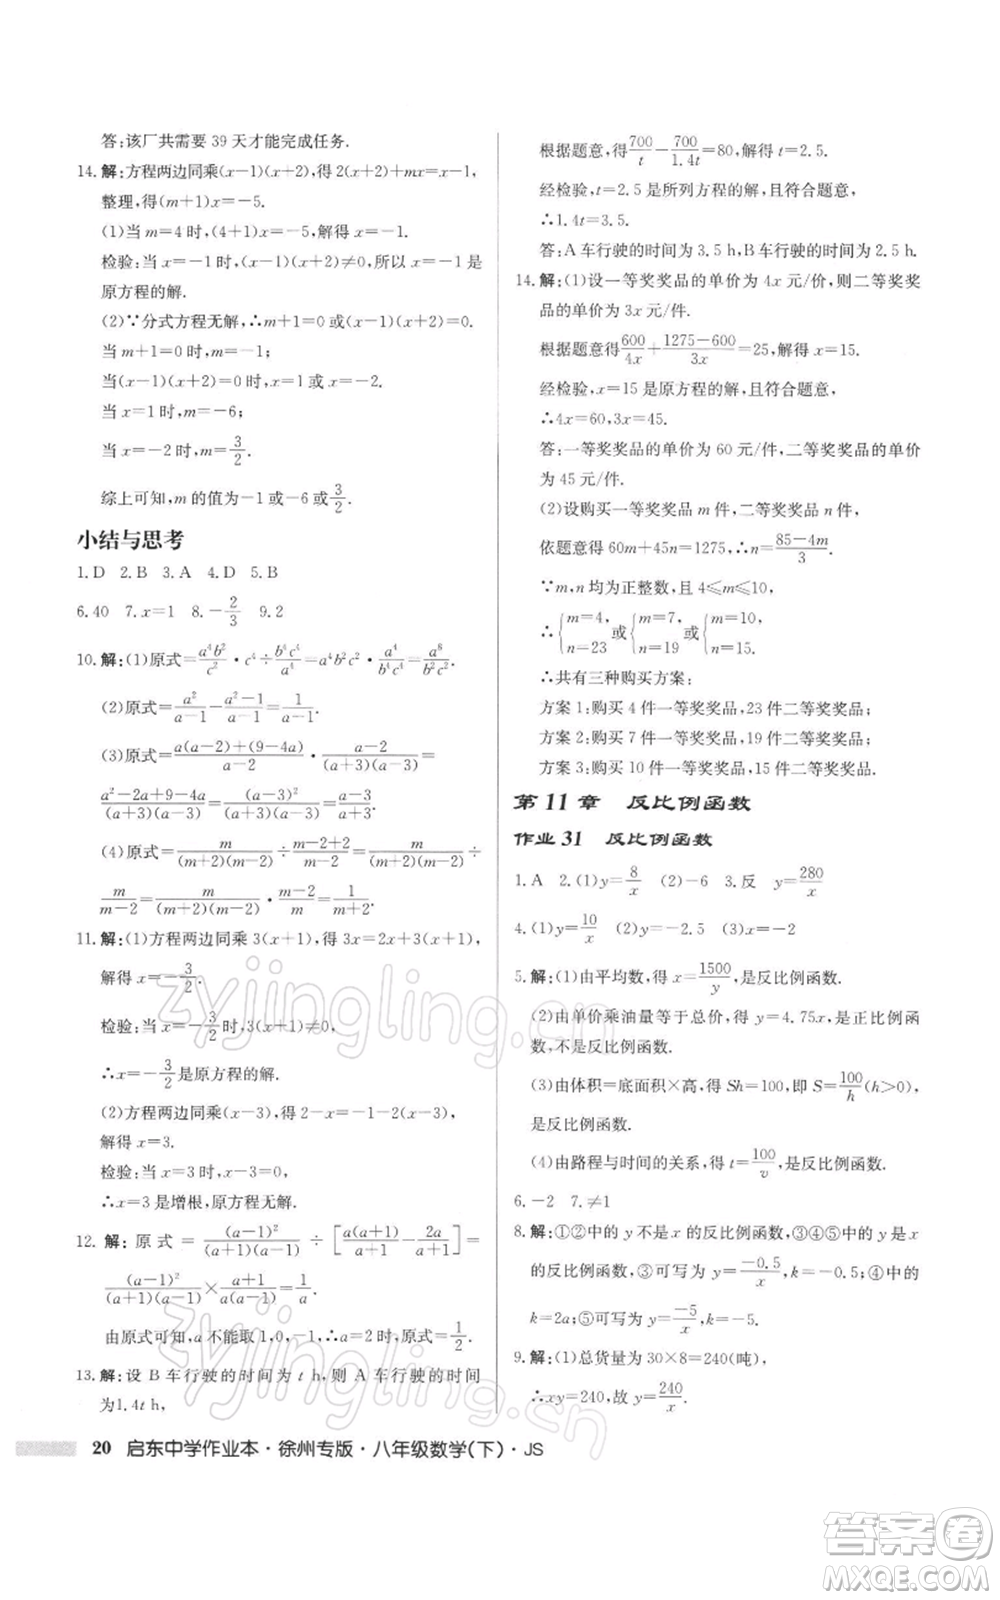 答:该厂共需要 39 天才能完成任务.
14.解:方程两边同乘(x-1)(x+2),得 2(x+2)+mx=x-1,
整理,得(m+1)x=-5.
(1)当 m=4 时,(4+1)x=-5,解得 x=-1.
检验:当 x=-1 时,(x-1)(x+2)≠0,所以 x=-1 是
原方程的解.
(2)∵分式方程无解,∴m+1=0 或(x-1)(x+2)=0.
当 m+1=0 时,m=-1;
当(x-1)(x+2)=0 时,x=1 或 x=-2.
当 x=1 时,m=-6;
当 x=-2 时,m=3/2.
综上可知,m 的值为-1 或-6 或3/2.
小结与思考
1.D 2.B 3.A 4.D 5.B
6.40 7.x=1 8.-2/3 9.2
10.解:(1)原式=a⁴b²/c²·c⁴÷b⁴c⁴/a⁴=a⁴b²c²·a⁴/(b⁴c⁴)=a⁸/(b²c²).
(2)原式=a²/(a-1)-(a²-1)/(a-1)=1/(a-1).
(3)原式=(a(a-2)+(9-4a))/(a-2)·(a-2)/((a+3)(a-3))=
(a²-2a+9-4a)/((a+3)(a-3))=(a-3)²/((a+3)(a-3))=(a-3)/(a+3).
(4)原式=m/((m+2)(m-2))÷(m-2+2)/(m-2)=m/((m+2)(m-2))÷
m/(m-2)=m/((m+2)(m-2))·(m-2)/m=1/(m+2).
11.解:(1)方程两边同乘 3(x+1),得 3x=2x+3(x+1),
解得 x=-3/2.
检验:当 x=-3/2时,3(x+1)≠0,
∴x=-3/2是原方程的解.
(2)方程两边同乘(x-3),得 2-x=-1-2(x-3),
解得 x=3.
检验:当 x=3 时,x-3=0,
∴x=3 是增根,原方程无解.
12.解:原式=(a-1)²/((a+1)(a-1))÷[a(a+1)/(a+1)-2a/(a+1)]=
(a-1)²/((a+1)(a-1))×(a+1)/(a(a-1))=1/a.
由原式可知,a 不能取 1,0,-1,∴a=2 时,原式=1/2.
13.解:设 B 车行驶的时间为 t h,则 A 车行驶的时间
为1.4t h,
根据题意,得700/t-700/1.4t=80,解得 t=2.5.
经检验,t=2.5 是所列方程的解,且符合题意.
∴1.4t=3.5.
答:A 车行驶的时间为 3.5 h,B 车行驶的时间为 2.5 h.
14.解:(1)设一等奖奖品的单价为 4x 元/价,则二等奖奖
品的单价为 3x 元/件.
根据题意得600/4x+(1275-600)/3x=25,解得 x=15.
经检验,x=15 是原方程的解,且符合题意,
∴4x=60,3x=45.
答:一等奖奖品的单价为 60 元/件,二等奖奖品的单价
为 45 元/件.
(2)设购买一等奖奖品 m 件,二等奖奖品 n 件,
依题意得 60m+45n=1275,∴n=(85-4m)/3.
∵m,n 均为正整数,且 4≤m≤10,
∴{m=4, n=23 或{m=7, n=19 或{m=10, n=15.
∴共有三种购买方案:
方案 1:购买 4 件一等奖奖品,23 件二等奖奖品;
方案 2:购买 7 件一等奖奖品,19 件二等奖奖品;
方案 3:购买 10 件一等奖奖品,15 件二等奖奖品.
第 11 章 反比例函数
作业 31 反比例函数
1.A 2.(1)y=8/x (2)-6 3.反 y=280/x
4.(1)y=10/x (2)y=-2.5 (3)x=-2
5.解:(1)由平均数,得 x=1500/y,是反比例函数.
(2)由单价乘油量等于总价,得 y=4.75x,是正比例函
数,不是反比例函数.
(3)由体积=底面积×高,得 Sh=100,即 S=100/h(h>0),
是反比例函数.
(4)由路程与时间的关系,得 t=100/v,是反比例函数.
6.-2 7.≠1
8.解:①②中的 y 不是 x 的反比例函数,③④⑤中的 y 是 x
的反比例函数,③可写为 y=-0.5/x,k=-0.5;④中的
k=2a;⑤可写为 y=-5/x,k=-5.
9.解:(1)总货量为 30×8=240(吨),
∴xy=240,故 y=240/x.
20 启东中学作业本·徐州专版·八年级数学(下)·JS
zyjingling.cn
zyjingling.cn
答案卷
MXQE.COM